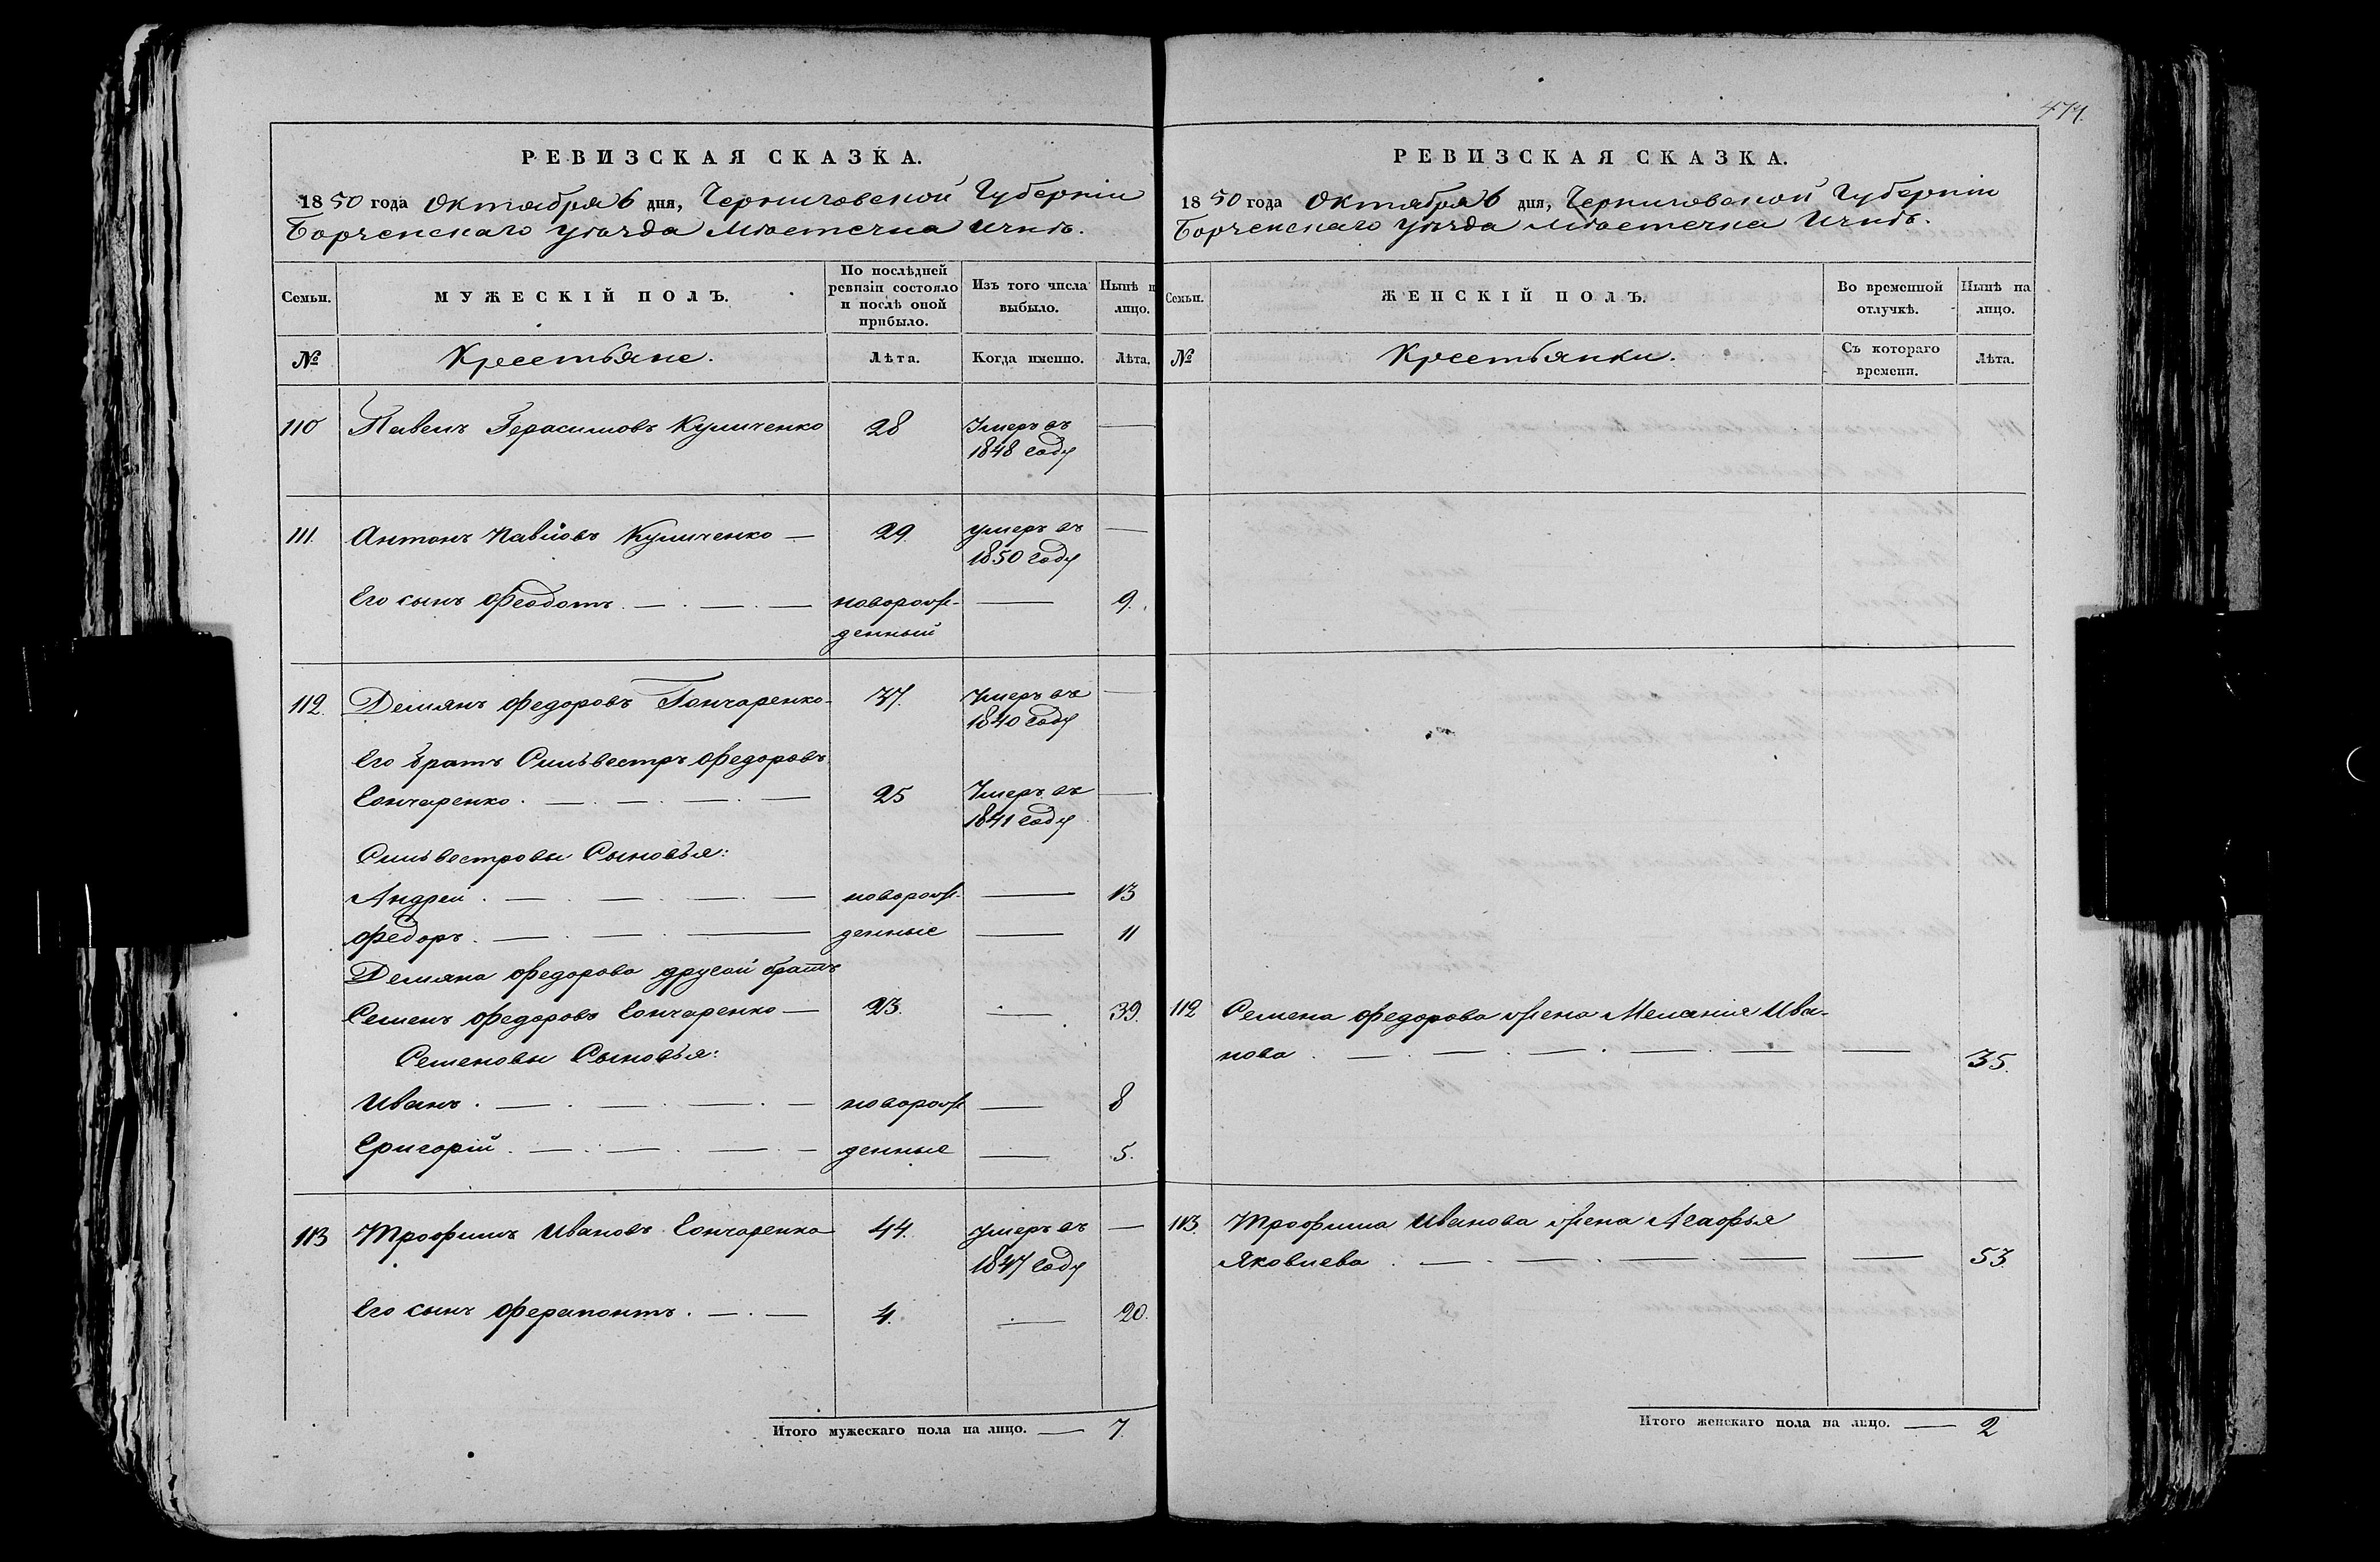 РЕВИЗСКАЯ СКАЗКА.
1850 года Октября 6 дня, Черниговской Губерніи
Борзенскаго уѣзда Мѣстечка Ични.
Семьи.
МУЖЕСКІЙ ПОЛЪ.
По послѣдней ревизіи состояло и послѣ оной прибыло.
Изъ того числа выбыло.
Нынѣ н лицо.
№
Крестьяне.
Лѣта.
Когда именно.
Лѣта.
110 Павелъ Герасимовъ Куличенко 28 Умеръ въ —
1848 году
111. Антонъ Павловъ Куличенко — 29. умеръ въ —
1850 году
Его сынъ Феодотъ. — . — . — новорож- — 9.
денный
112. Демянъ Федоровъ Гончаренко- 37. Умеръ въ —
1840 году
Его братъ Сильвестръ Федоровъ
Гончаренко. — . — . — . — 25 Умеръ въ —
1841 году
Сильвестровы Сыновья:
Андрей . — . — . — . — новорож- — 13
Федоръ. — . — . — денные — 11
Демяна Федорова другой братъ
Семенъ Федоровъ Гончаренко — 23. — 39.
Семеновы Сыновья:
Иванъ . — . — . — . — новорож — 8
Григорій . — . — . — . — денные — 5.
113 Трофимъ Ивановъ Гончаренко 44. умеръ въ —
1847 году
Его сынъ Ферапонтъ. — . — 4. — 20.
Итого мужескаго пола на лицо. — 7.
РЕВИЗСКАЯ СКАЗКА.
1850 года Октября 6 дня, Черниговской Губерніи
Борзенскаго уѣзда Мѣстечка Ични.
Семьи.
ЖЕНСКІЙ ПОЛЪ.
Во временной отлучкѣ.
Нынѣ на лицо.
№
Крестьянки.
Съ котораго времени.
Лѣта.
112 Семена Федорова жена Меланія Ива-
нова . — . — . — . — . — — 35.
113. Трофима Иванова жена Агафья
Яковлева . — . — . — . — — 53.
Итого женскаго пола на лицо. — 2